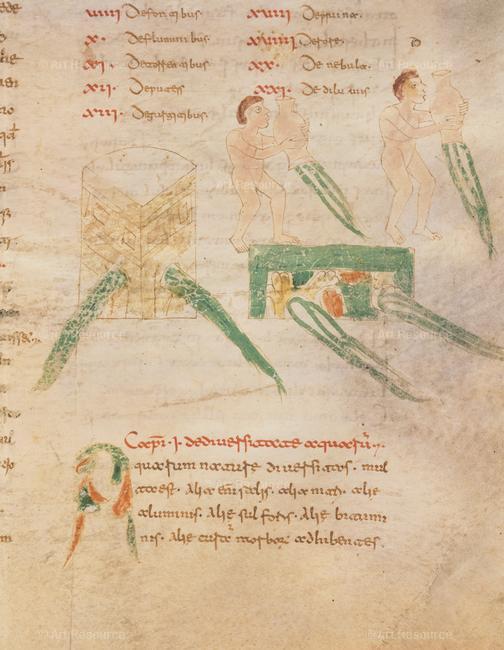 viiii Defontibus. xviii Depruina.
x. Defluminibus. xviiii Derore.
xi. Detorrentibus xx. De nebula.
xii. Deputeis xxi. De diluuiis
xiii. Degurgitibus.
Capt. I. dediuersitate aquarū.
Aquarum nature diuersitas. mul
ta est. Alie enī salis. alie nitri. alie
aluminis. Alie sulforis. Alie bitumi
nis. Alie curā morborū adhibentes.